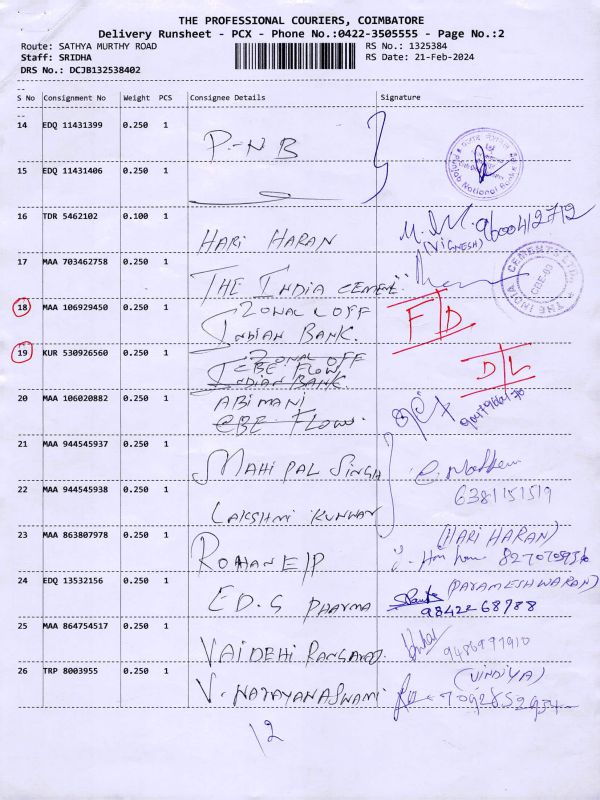 THE PROFESSIONAL COURIERS, COIMBATORE
Delivery Runsheet - PCX - Phone No.:0422-3505555 - Page No.:2
Route: SATHYA MURTHY ROAD RS No.: 1325384
Staff: SRIDHA RS Date: 21-Feb-2024
DRS No.: DCJB132538402
S No Consignment No Weight PCS Consignee Details Signature
14 EDQ 11431399 0.250 1 P-NB
Punjab National Bank
15 EDQ 11431406 0.250 1
16 TDR 5462102 0.100 1 HARI HARAN 9600412712
(VIGNESH)
17 MAA 703462758 0.250 1 THE INDIA CEMENT
THE INDIA CEMENTS LTD.
18 MAA 106929450 0.250 1 ZONAL OFF
INDIAN BANK. F/D
19 KUR 530926560 0.250 1 ZONAL OFF
CBE FLOW
INDIAN BANK D/L
20 MAA 106020882 0.250 1 ABIMANI
CBE FLOWS.
21 MAA 944545937 0.250 1 MAHIPAL SINGH
6381151519
22 MAA 944545938 0.250 1 LAKSHMI KUNWAR
23 MAA 863807978 0.250 1 ROHAN E/P (HARI HARAN)
24 EDQ 13532156 0.250 1 E.D.S PHARMA (PARAMESHWARAN)
98422 68788
25 MAA 864754517 0.250 1 VAIDEHI RANGARAJ. 9486977910
26 TRP 8003955 0.250 1 V. NARAYANASWAMI (VINDIYA)
7092852934
12